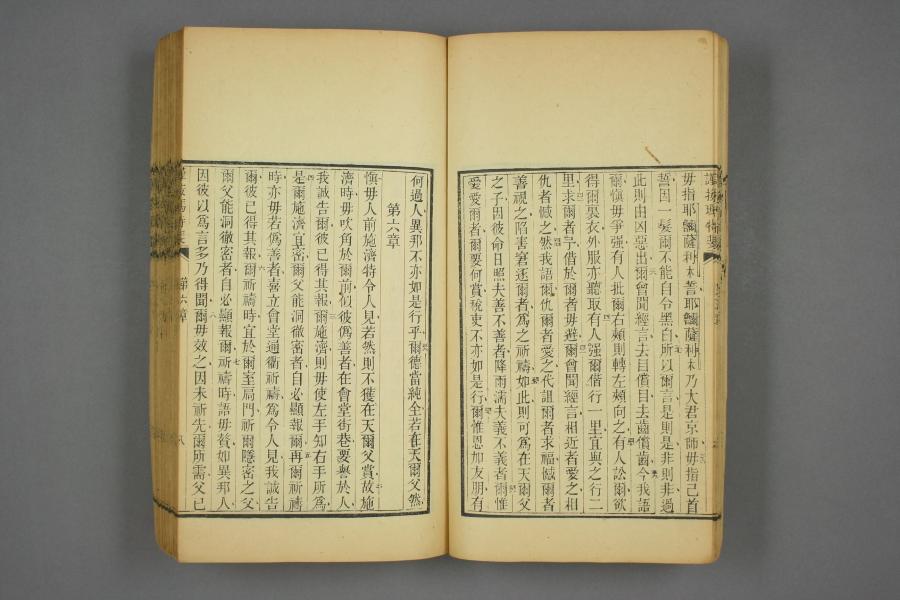 毋指耶𡀔薩利〻誓耶𡀔薩利〻乃大君京師毋指己首
誓因一髮爾不能自令黑白所以爾言是則是非則非過
此則由凶惡出爾曾聞經言去目償目去齒償齒今我語
爾愼毋爭强有人批爾右頰則轉左頰向之有人訟爾欲
得爾裏衣外服亦聽取有人强爾偕行一里宜與之行二
里求爾者予借於爾者毋避爾曾聞經言相近者愛之相
仇者憾之然我語爾仇爾者愛之代詛爾者求福憾爾者
善視之陷害窘逐爾者爲之祈禱如此則可爲在天爾父
之子因彼命日照夫善不善者降雨濡夫義不義者爾惟
愛愛爾者爾要何賞稅吏不亦如是行爾惟恩加友朋有
何過人異邦不亦如是行乎爾德當純全若在天爾父然
第六章
愼毋人前施濟特令人見若然則不獲在天爾父賞故施
濟時毋吹角於爾前似彼僞善者在會堂街巷要譽於人
我誠告爾彼已得其報爾施濟則毋使左手知右手所爲
是爾施濟宜密爾父能洞徹密者自必顯報爾再爾祈禱
時亦毋若僞善者喜立會堂通衢祈禱爲令人見我誠告
爾彼已得其報爾祈禱時宜於爾室扃門祈爾隱密之父
爾父能洞徹密者自必顯報爾祈禱時語毋贅如異邦人
因彼以爲言多乃得聞爾毋效之因未祈先爾所需父已
第六章
八